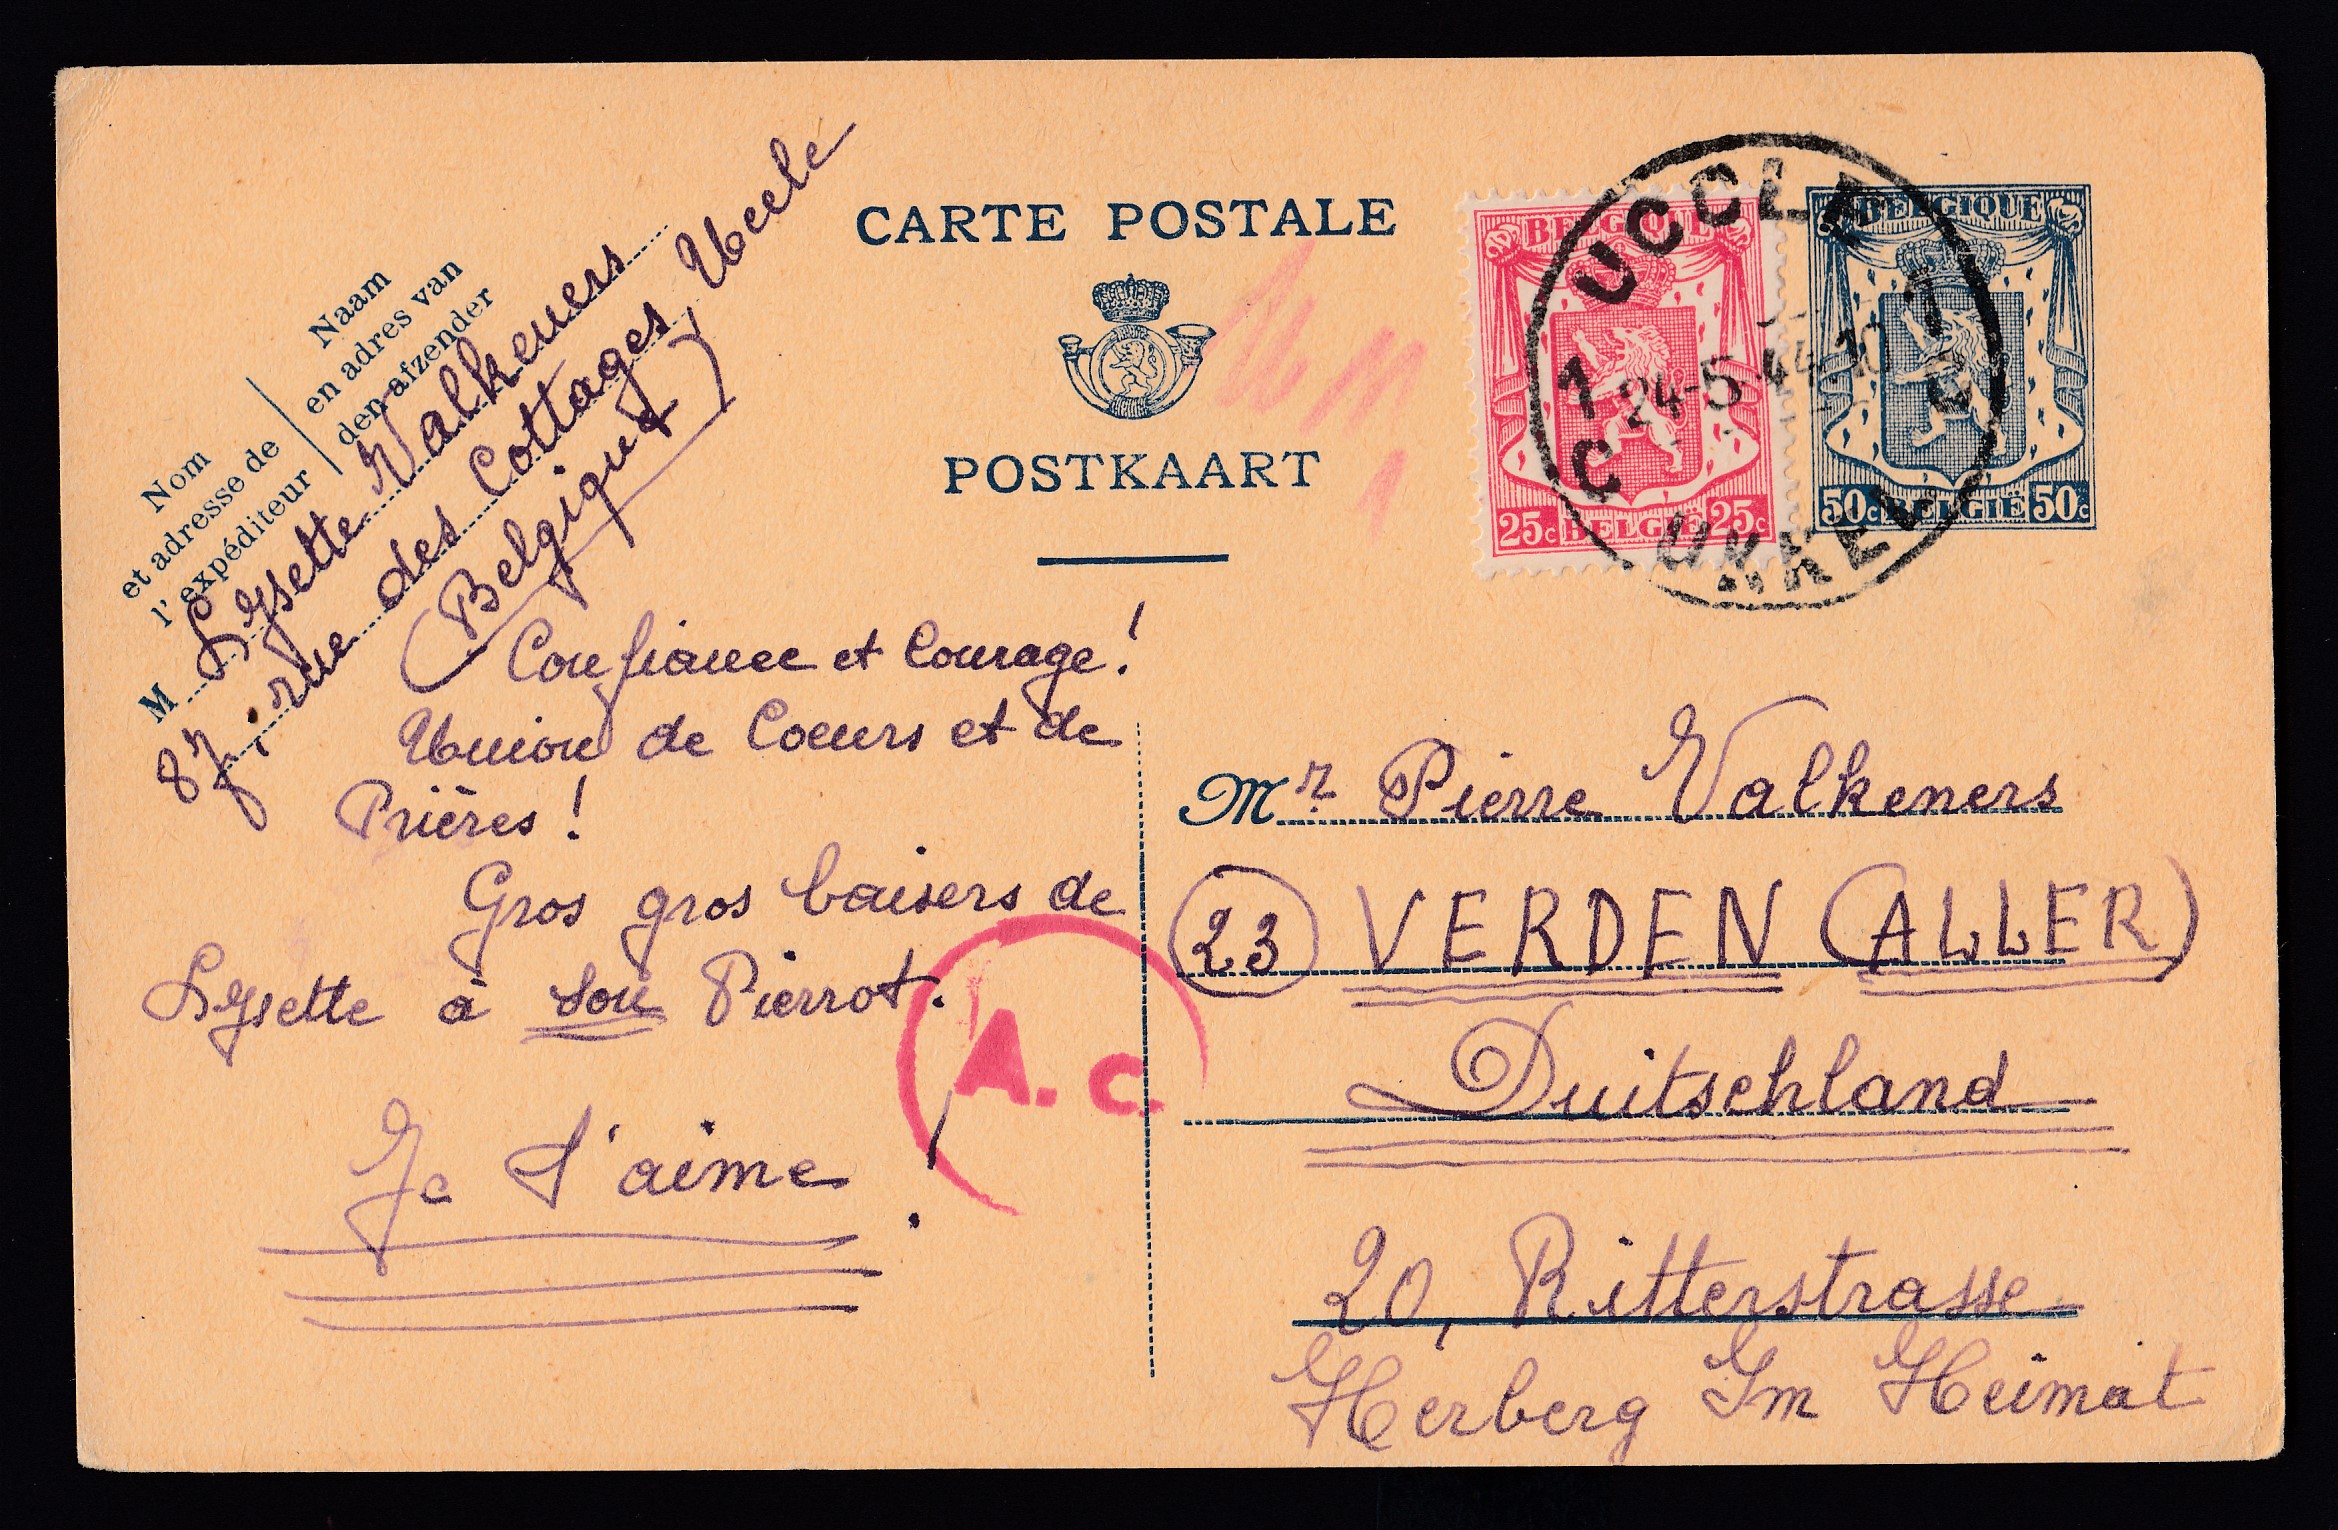 CARTE POSTALE
POSTKAART
Naam
en adres van
den afzender
Nom
et adresse de
l'expéditeur
M Lysette Valkeners
87, rue des Cottages, Uccle
(Belgique)
BELGIQUE
25c BELGIË 25c
BELGIQUE
50c BELGIË 50c
UCCLE 1
1 24-5-44 10
C C
UKKEL
Confiance et Courage!
Union de Coeurs et de
Prières!
Gros gros baisers de
Lysette à son Pierrot.
Je t'aime!
A.c.
Mr Pierre Valkeners
23 VERDEN (ALLER)
Duitschland
20, Ritterstrasse
Herberg Im Heimat